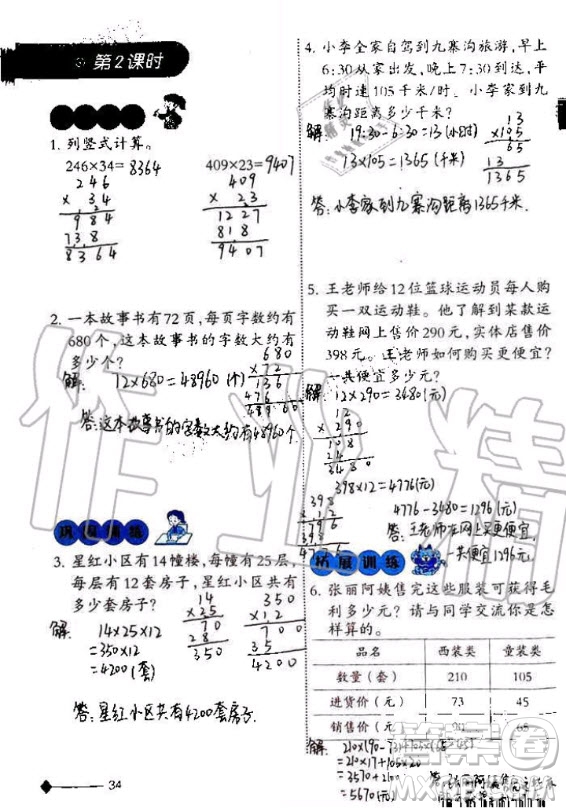 第2课时
1. 列竖式计算。
246×34=8364
409×23=9407
246
× 34
984
738
8364
409
× 23
1227
818
9407
2. 一本故事书有72页，每页字数约有
680个，这本故事书的字数大约有
多少个？
解:
12×680=48960(个)
680
×12
136
476
48960
答:这本故事书的字数大约有48960个.
巩固训练
3. 星红小区有14幢楼，每幢有25层，
每层有12套房子？星红小区共有
多少套房子？
解:
14×25×12
=350×12
=4200(套)
14
×25
70
28
350
350
×12
700
35
4200
答:星红小区共有4200套房子.
34
4. 小李全家自驾到九寨沟旅游，早上
6:30从家出发，晚上7:30到达，平
均时速105千米/时。小李家到九
寨沟距离多少千米？
解:
19:30-6:30=13(小时)
13×105=1365(千米)
13
×105
65
13
1365
答:小李家到九寨沟距离1365千米.
5. 王老师给12位篮球运动员每人购
买一双运动鞋。他了解到某款运
动鞋网上售价290元，实体店售价
398元。王老师如何购买更便宜？
一共便宜多少元？
解:
12×290=3480(元)
12
×290
108
24
3480
398×12=4776(元)
398
×12
4776-3480=1296(元)
答:王老师在网上买更便宜,
一共便宜1296元.
拓展训练
6. 张丽阿姨售完这些服装可获得毛
利多少元？请与同学交流你是怎
样算的。
品名 西装类 童装类
数量（套） 210 105
进货价（元） 73 45
销售价（元） 90 65
解:
=210×17+105×20
=3570+2100
=5670(元)